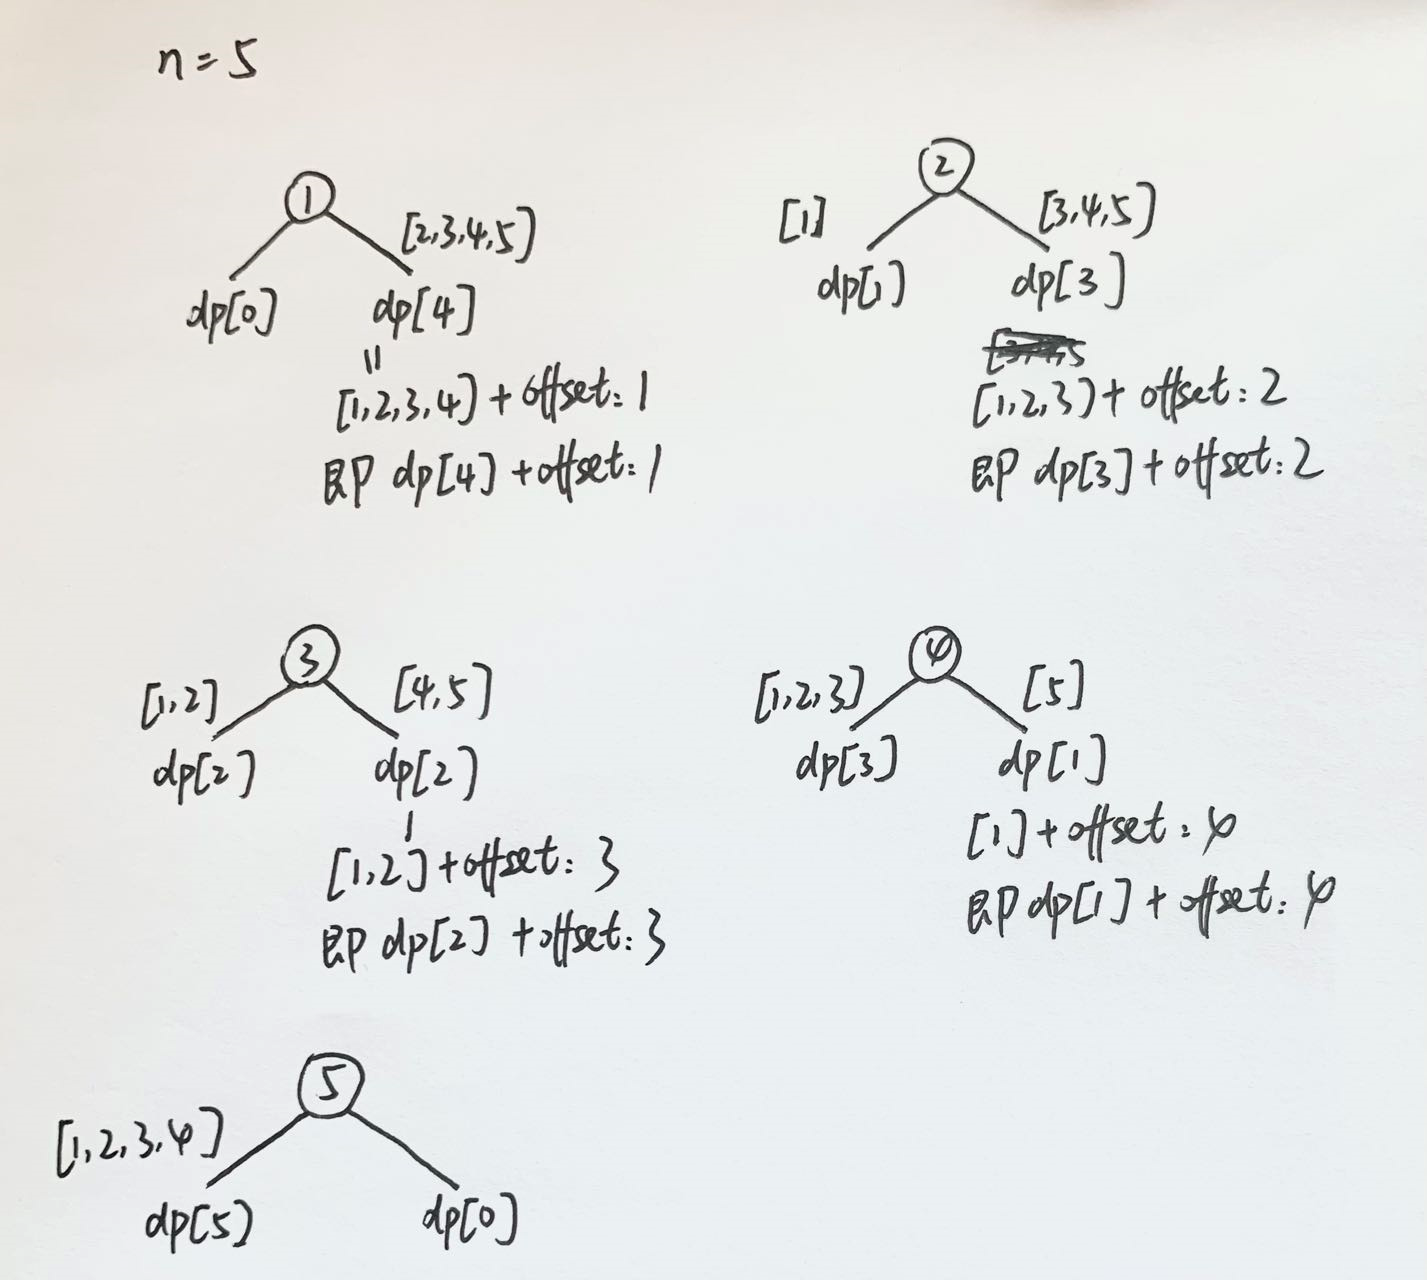 n=5
1
[2,3,4,5]
dp[0] dp[4]
[1,2,3,4]+offset:1
即 dp[4]+offset:1
2
[1] [3,4,5]
dp[1] dp[3]
[1,2,3]+offset:2
即 dp[3]+offset:2
3
[1,2] [4,5]
dp[2] dp[2]
[1,2]+offset:3
即 dp[2]+offset:3
4
[1,2,3] [5]
dp[3] dp[1]
[1]+offset:4
即 dp[1]+offset:4
5
[1,2,3,4]
dp[5] dp[0]